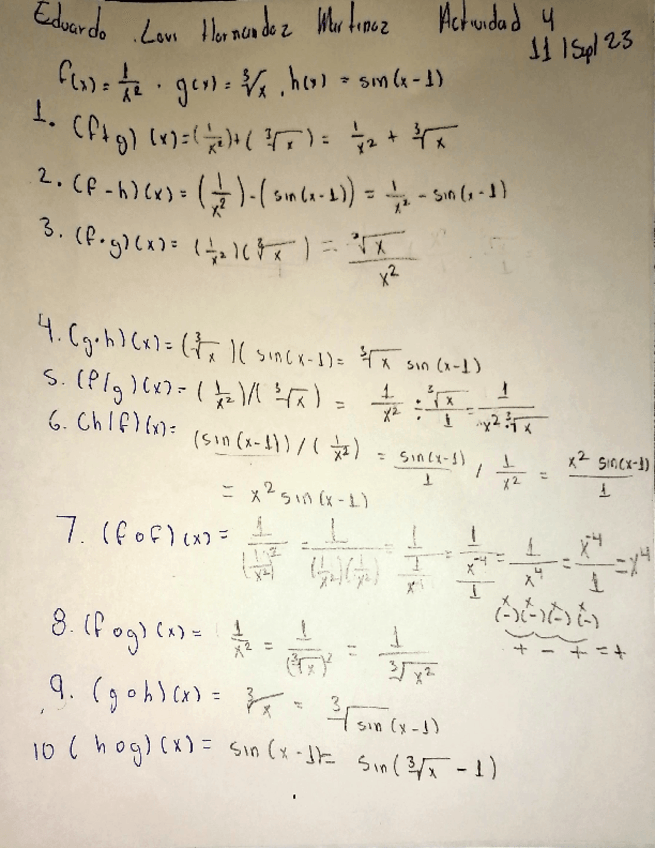 Eduardo Levi Hernandez Martinez Actividad 4
11 | Sep | 23
f(x) = 1/x² . g(x) = ∛x , h(x) = sin(x-1)
1. (f+g) (x) = (1/x²) + (∛x) = 1/x² + ∛x
2. (f-h)(x) = (1/x²) - (sin(x-1)) = 1/x² - sin(x-1)
3. (f·g)(x) = (1/x²)(∛x) = ∛x/x²
4. (g·h)(x) = (∛x)(sin(x-1) = ∛x sin(x-1)
5. (f/g)(x) = (1/x²)/(∛x) = 1/x² ÷ ∛x/1 = 1/x²∛x
6. (h/f)(x) = (sin(x-1))/(1/x²) = sin(x-1)/1 / 1/x² = x² sin(x-1)/1
= x² sin(x-1)
7. (f o f)(x) = 1/(1/x²)² = 1/(1/x²)(1/x²) = 1/(1/x⁴) = 1/(x⁻⁴/1) = 1/x⁴ = x⁻⁴/1 = x⁴
(-)(-)(-)(-)
+ - + = +
8. (f o g)(x) = 1/x² = 1/(∛x)² = 1/∛x²
9. (g o h)(x) = ∛x = ∛sin(x-1)
10 (h o g)(x) = sin(x-1) = sin(∛x - 1)